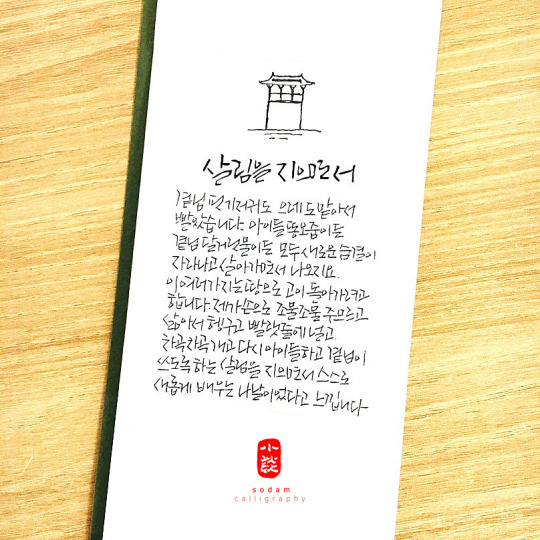 살림을 지으면서
곁님 핏기저귀도 으레 도맡아서
빨았습니다. 아이들 똥오줌이든
곁님 달거리물이든 모두 새로운 숨결이
자라나고 살아가면서 나오지요.
이 여러가지는 땅으로 고이 돌아가려고
합니다. 제가 손으로 조물조물 주므르고
삶아서 헹구고 빨랫줄에 널고
차곡차곡 개고 다시 아이들하고 곁님이
쓰도록 하는 살림을 지으면서 스스로
새롭게 배우는 나날이었다고 느낍니다
小談
sodam
calligraphy